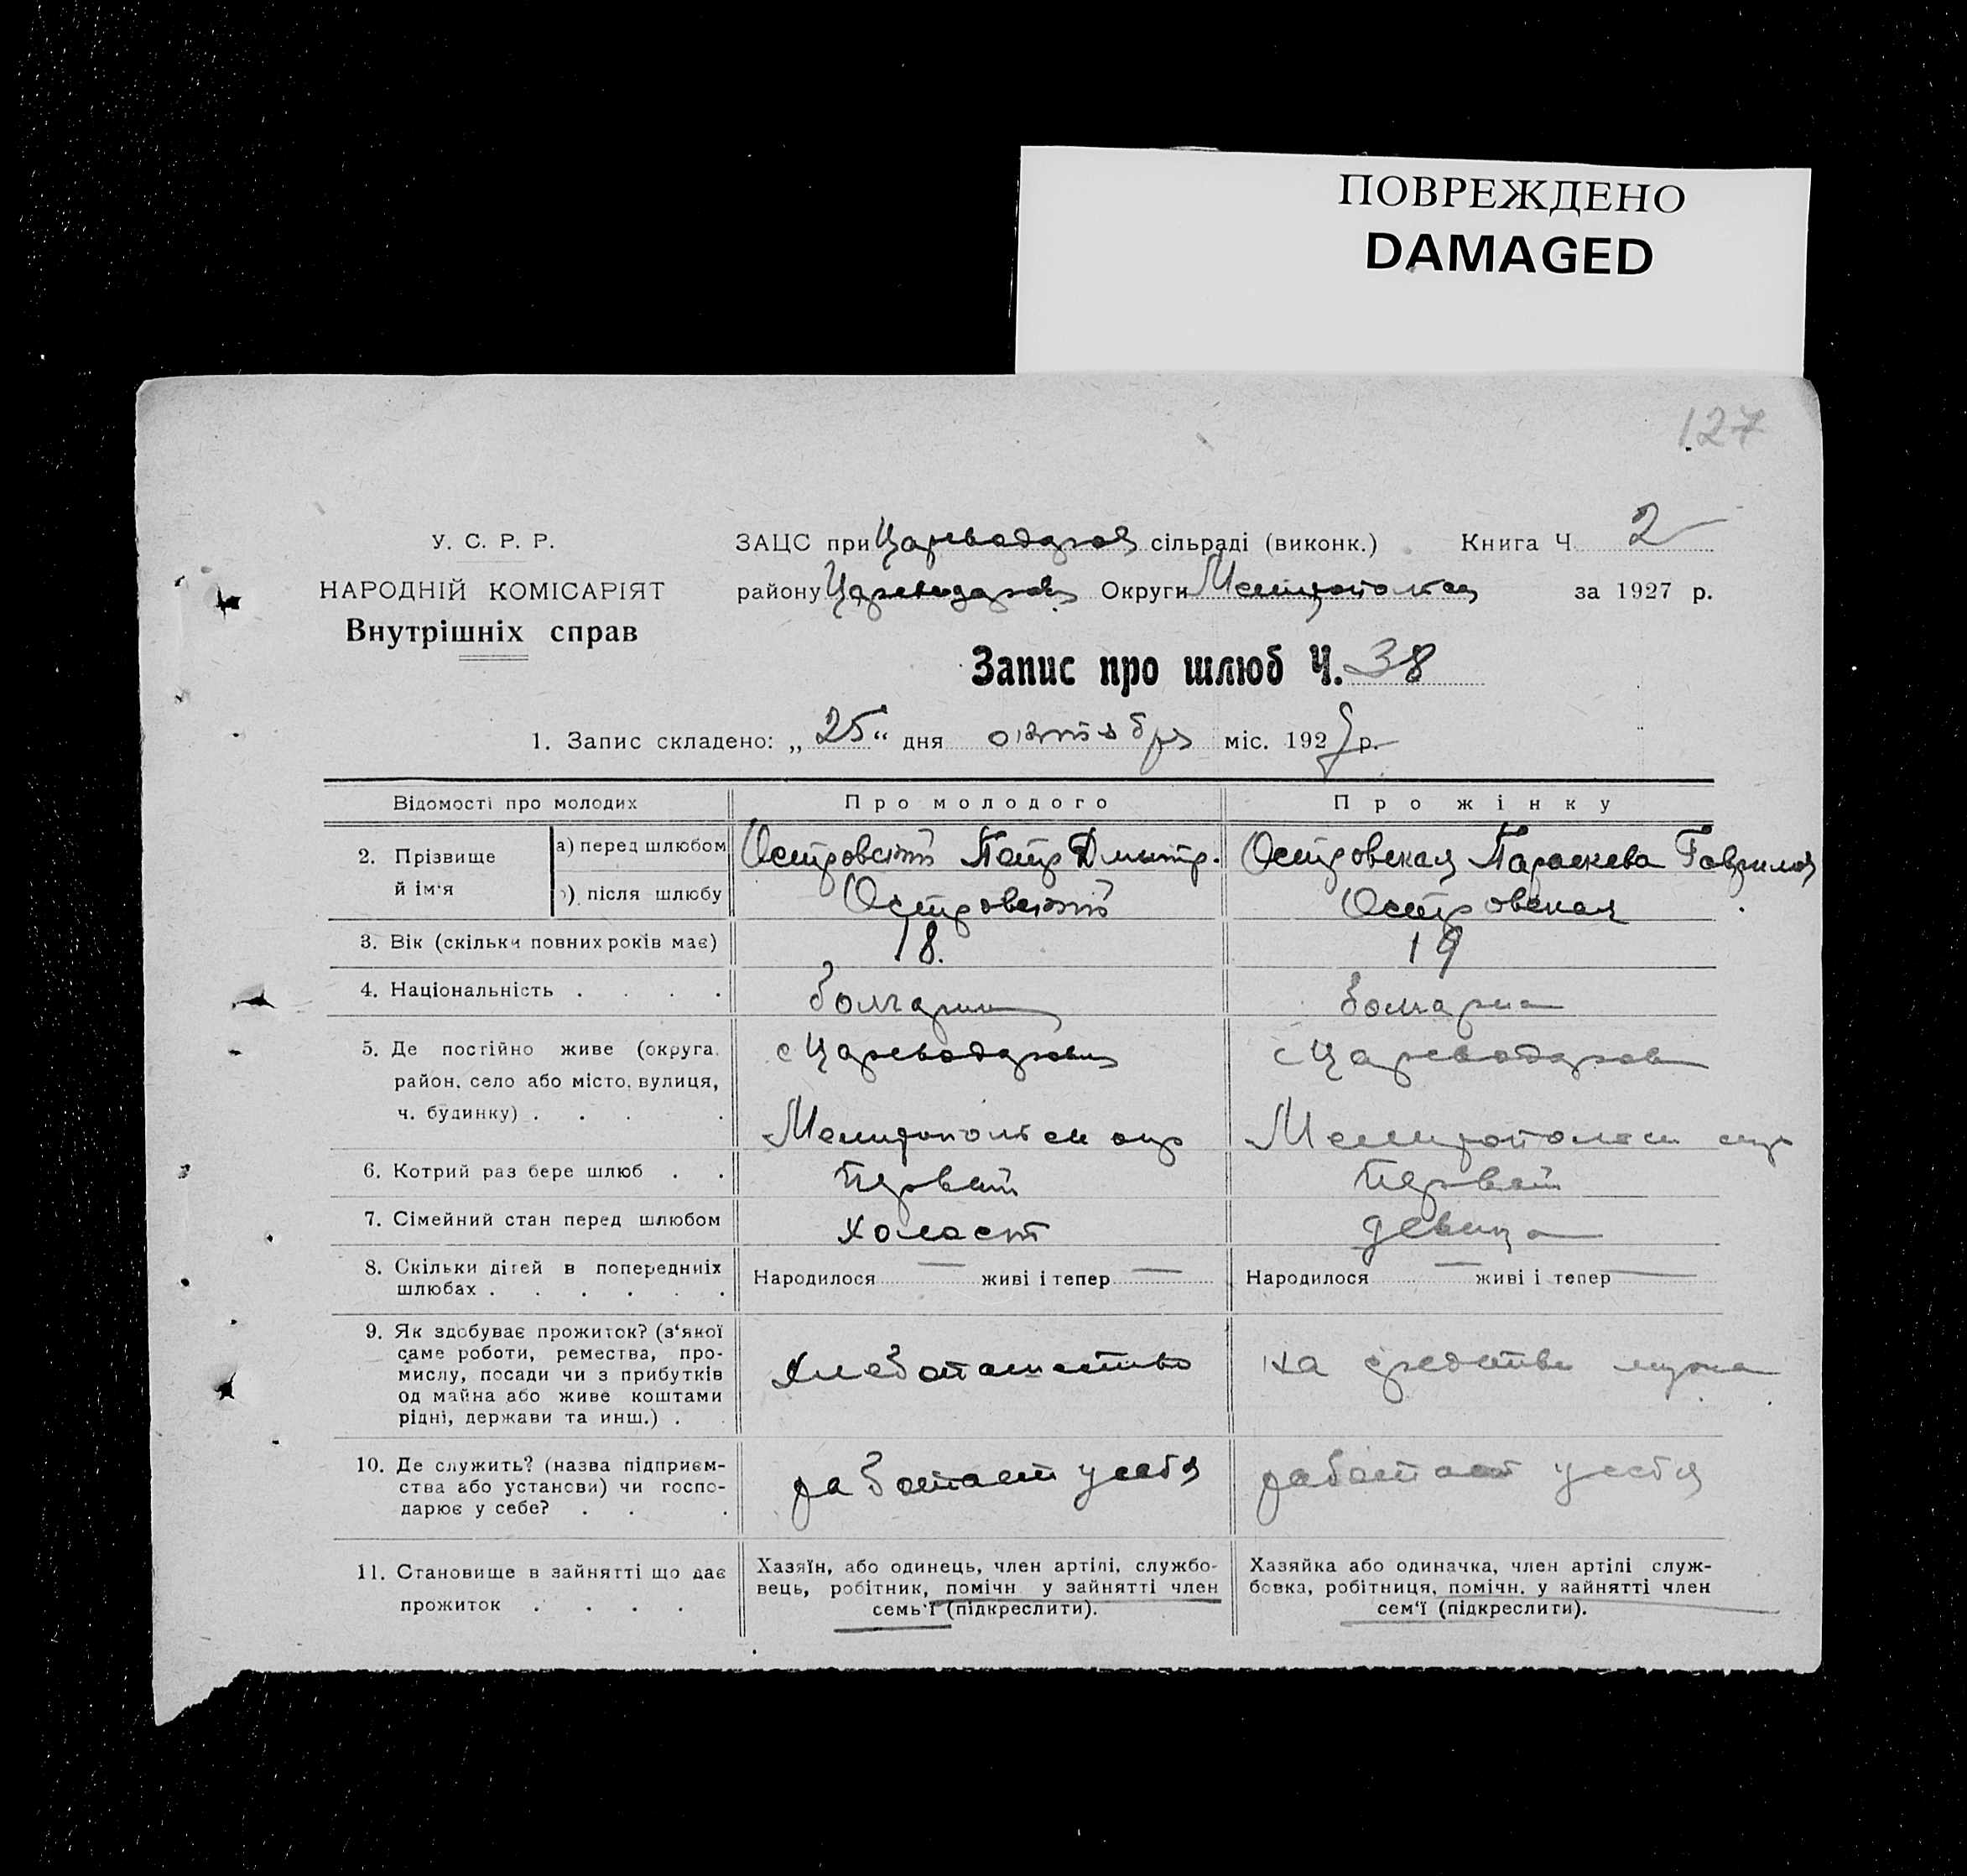 ПОВРЕЖДЕНО
DAMAGED
127
У. С. Р. Р.
НАРОДНІЙ КОМІСАРІЯТ
Внутрішніх справ
ЗАЦС при Цареводаров сільраді (виконк.) Книга Ч. 2
району Цареводаров Округи Мелитопольск за 1927 р.
Запис про шлюб Ч. 38
1. Запис складено: „25“ дня октября міс. 1927 р.
Відомості про молодих
Про молодого
Про жінку
2. Прізвище й ім'я
а) перед шлюбом
Островский Петр Дмитр.
Островская Параскева Гаврилов
б) після шлюбу
Островский
Островская
3. Вік (скільки повних років має)
18.
19
4. Національність . . . .
болгарин
болгарка
5. Де постійно живе (округа,
район, село або місто, вулиця,
ч. будинку) . . . .
с Цареводаровк
Мелитопольск окр
с Цареводаровк
Мелитопольск окр
6. Котрий раз бере шлюб . .
Первый
Первый
7. Сімейний стан перед шлюбом
холост
девица
8. Скільки дітей в попередниіх
шлюбах . . . . . .
Народилося — живі і тепер —
Народилося — живі і тепер —
9. Як здобуває прожиток? (з'якої
саме роботи, ремества, про-
мислу, посади чи з прибутків
од майна або живе коштами
рідні, держави та инш.) .
хлебопашество
на средства мужа
10. Де служить? (назва підприєм-
ства або установи) чи госпо-
дарює у себе? . . .
работает усебя
работает усебя
11. Становище в зайнятті що дає
прожиток . . . .
Хазяїн, або одинець, член артілі, службо-
вець, робітник, помічн. у зайнятті член
семь'ї (підкреслити).
Хазяйка або одиначка, член артілі служ-
бовка, робітниця, помічн. у зайнятті член
сем'ї (підкреслити).